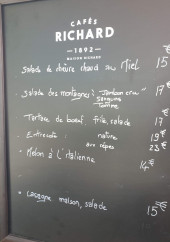 CAFÉS
RICHARD
1892
MAISON RICHARD
Salade de chèvre chaud au Miel 15
Salade des montagnes: Jambon cru 17
Tomme
Tartare de boeuf, frite, salade 17
Entrecôte nature 19€
aux cèpes 23€
• Melon à l'italienne
14€
• Lasagne maison, salade 15